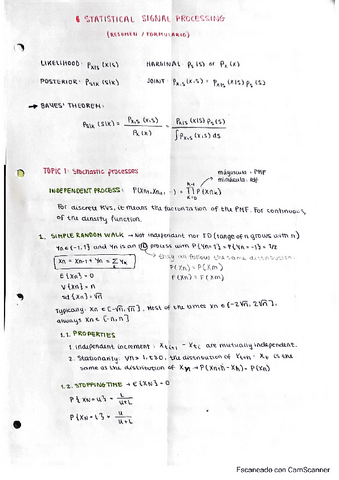 STATISTICAL SIGNAL PROCESSING
(RESUMEN / FORMULARIO)
LIKELIHOOD: P_{X|S}(x|s) MARGINAL P_S(s) or P_X(x)
POSTERIOR: P_{S|X}(s|x) JOINT: P_{X,S}(x,s) = P_{X|S}(x|s) P_S(s)
→ BAYES' THEOREM:
P_{S|X}(s|x) = P_{X,S}(x,s) / P_X(x) = P_{X|S}(x|s) P_S(s) / ∫P_{X,S}(x,s) ds
TOPIC 1: Stochastic processes
mayuscula → PMF
minúscula: pdf
INDEPENDENT PROCESS:
For discrete RVs, it means the factorization of the PMF. For continuous,
of the density function.
1. SIMPLE RANDOM WALK → Not independent nor IID (range of n grows with n)
Yn ∈ {-1,1} and Yn is an IID process with P{Yn=1} = P{Yn=-1} = 1/2
they all follow the same distribution.
Xn = Xn-1 + Yn = Σ Yk
P(Xn) = P(Xm)
E{Xn} = 0
F(Xn) = F(Xm)
V{Xn} = n
sd{Xn} = √n
Typically: Xn ∈ [-√n, √n], Most of the times Xn ∈ [-2√n, 2√n],
always Xn ∈ [-n, n]
1.1. PROPERTIES
1. Independent increment: are mutually independent.
2. Stationarity: the distribution of is the
same as the distribution of
1.2. STOPPING TIME → E{XN} = 0
P{XN = U} = L / (U+L)
P{XN = L} = U / (U+L)
Escaneado con CamScanner